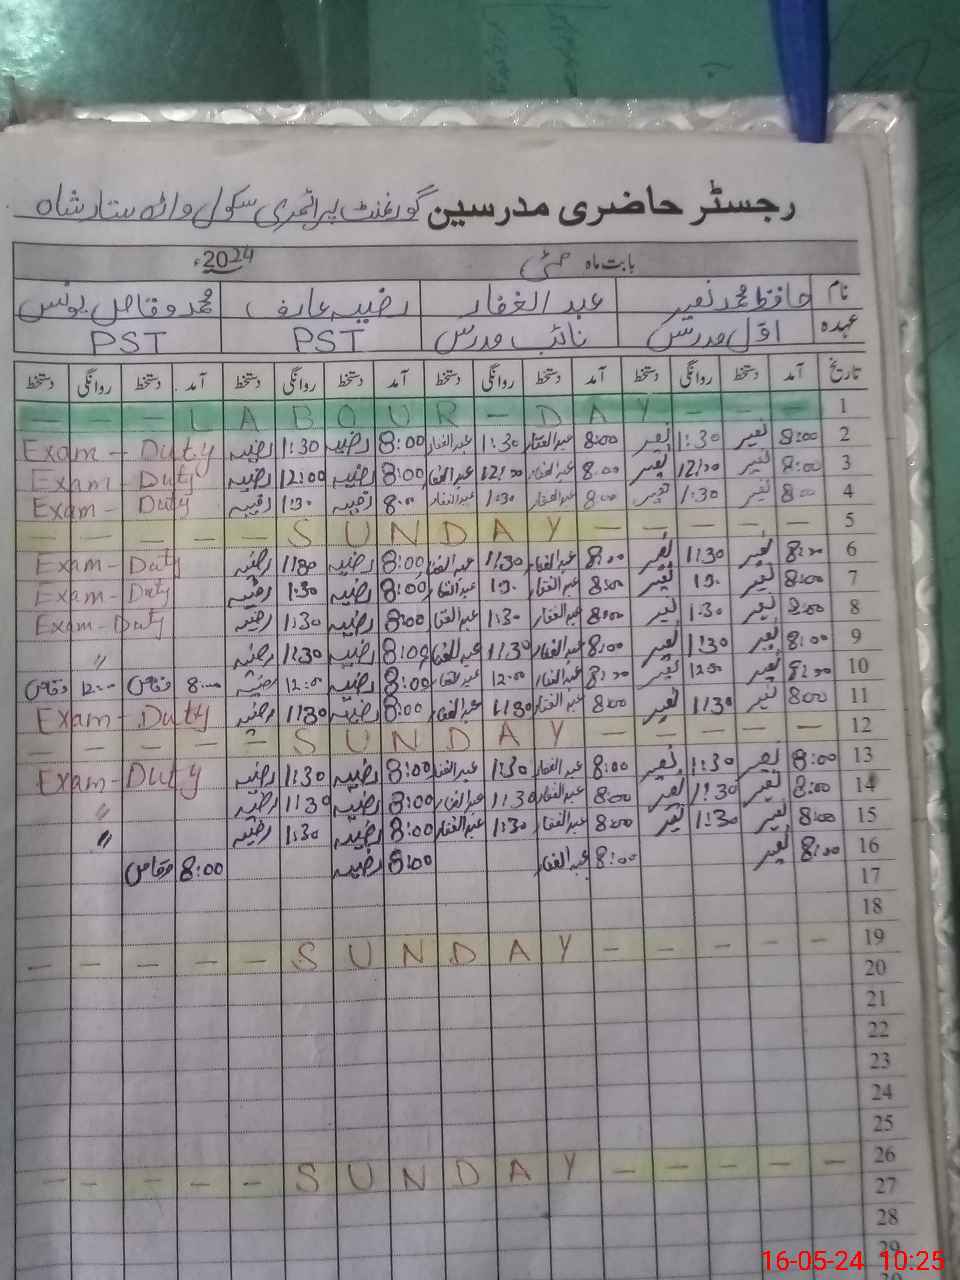 رجسٹر حاضری مدرسین گورنمنٹ پرائمری سکول واڑہ ستار شاہ
بابت ماہ مئی 2024ء
نام حافظ محمد نعیر عبدالغفار رضیہ عارف محمد وقاص یونس
عہدہ اوّل مدرس نائب مدرس PST PST
تاریخ آمد دستخط روانگی دستخط آمد دستخط روانگی دستخط آمد دستخط روانگی دستخط آمد دستخط روانگی دستخط
1 - - - L A B O U R - D A Y - - - -
2 8:00 نعیر 1:30 نعیر 8:00 عبدالغفار 1:30 عبدالغفار 8:00 رضیہ 1:30 رضیہ Exam - Duty
3 8:00 نعیر 12:00 نعیر 8:00 عبدالغفار 12:00 عبدالغفار 8:00 رضیہ 12:00 رضیہ Exam - Duty
4 8:00 نعیر 1:30 نعیر 8:00 عبدالغفار 1:30 عبدالغفار 8:00 رضیہ 1:30 رضیہ Exam - Duty
5 - - - - - S U N D A Y - - - - -
6 8:00 نعیر 1:30 نعیر 8:00 عبدالغفار 1:30 عبدالغفار 8:00 رضیہ 1:30 رضیہ Exam - Duty
7 8:00 نعیر 1:30 نعیر 8:00 عبدالغفار 1:30 عبدالغفار 8:00 رضیہ 1:30 رضیہ Exam - Duty
8 8:00 نعیر 1:30 نعیر 8:00 عبدالغفار 1:30 عبدالغفار 8:00 رضیہ 1:30 رضیہ Exam - Duty
9 8:00 نعیر 1:30 نعیر 8:00 عبدالغفار 1:30 عبدالغفار 8:00 رضیہ 1:30 رضیہ "
10 8:00 نعیر 12:00 نعیر 8:00 عبدالغفار 12:00 عبدالغفار 8:00 رضیہ 12:00 رضیہ 8:00 وقاص 12:00 وقاص
11 8:00 نعیر 1:30 نعیر 8:00 عبدالغفار 1:30 عبدالغفار 8:00 رضیہ 1:30 رضیہ Exam - Duty
12 - - - - - S U N D A Y - - - - -
13 8:00 نعیر 1:30 نعیر 8:00 عبدالغفار 1:30 عبدالغفار 8:00 رضیہ 1:30 رضیہ Exam - Duty
14 8:00 نعیر 1:30 نعیر 8:00 عبدالغفار 1:30 عبدالغفار 8:00 رضیہ 1:30 رضیہ "
15 8:00 نعیر 1:30 نعیر 8:00 عبدالغفار 1:30 عبدالغفار 8:00 رضیہ 1:30 رضیہ "
16 8:00 نعیر 8:00 عبدالغفار 8:00 رضیہ 8:00 وقاص
17
18
19 - - - - - S U N D A Y - - - - -
20
21
22
23
24
25
26 - - - - - S U N D A Y - - - - -
27
28
29
16-05-24 10:25